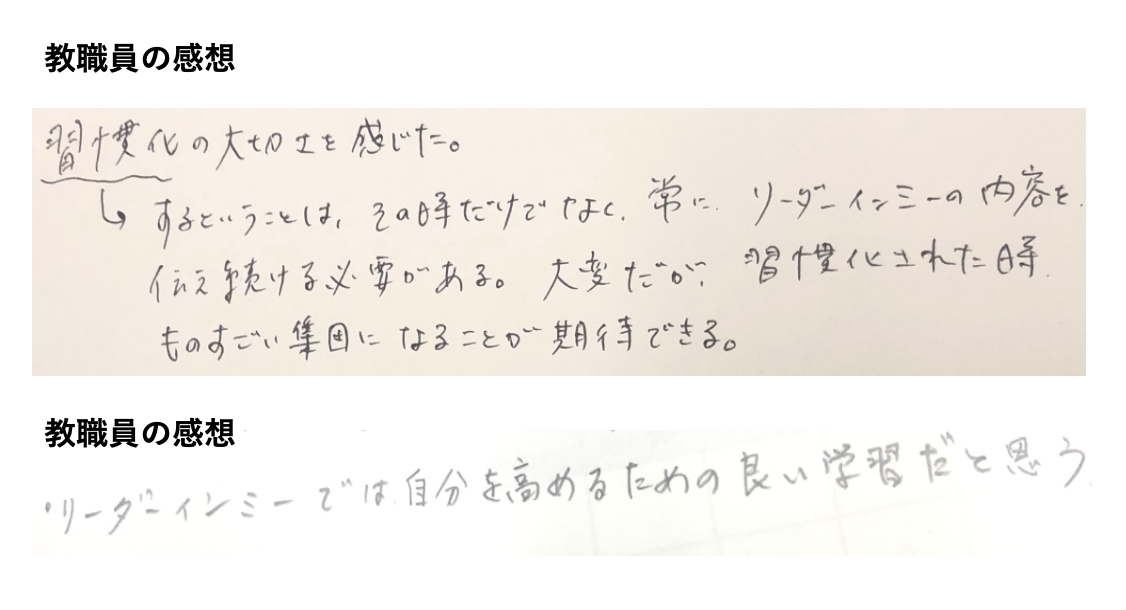 教職員の感想
習慣化の大切さを感じた。
↳ するということは、その時だけでなく、常に リーダーインミーの内容を
伝え続ける必要がある。大変だが、習慣化された時
ものすごい集団になることが期待できる。
教職員の感想
・リーダーインミーでは自分を高めるための良い学習だと思う